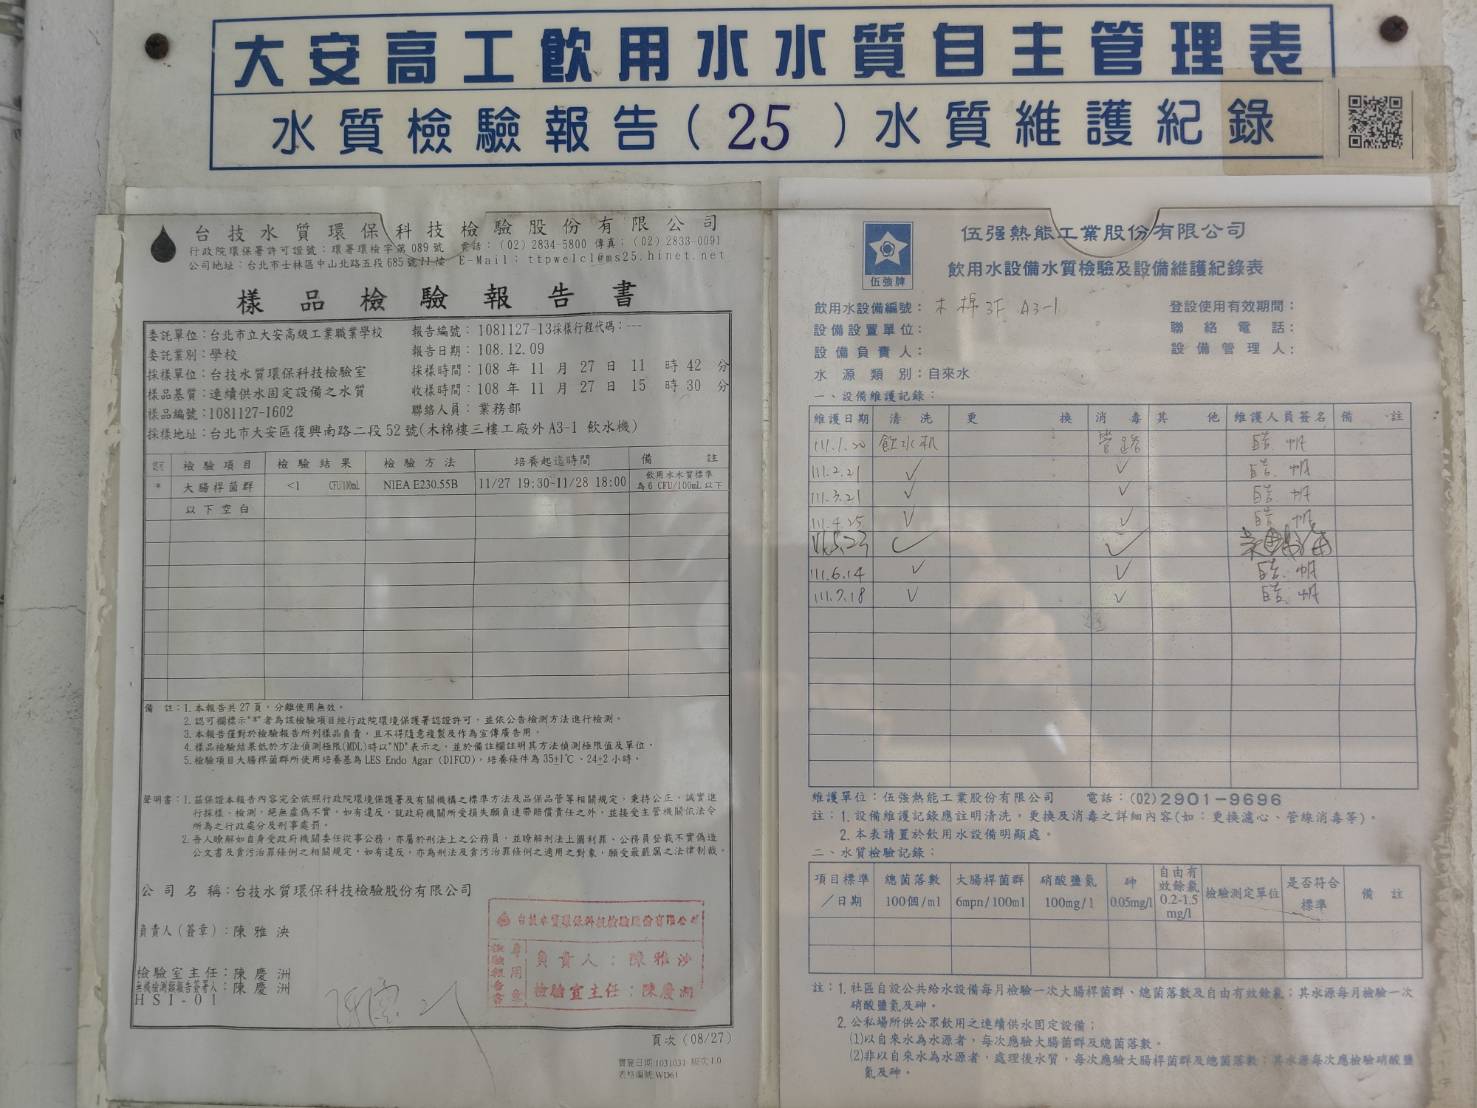 大安高工飲用水水質自主管理表
水質檢驗報告(25)水質維護紀錄
台技水質環保科技檢驗股份有限公司
行政院環保署許可證號：環署環檢字第089號 電話：(02) 2834-5800 傳真：(02) 2833-0091
公司地址：台北市士林區中山北路五段685號11樓 E-Mail：ttpwelcl@ms25.hinet.net
樣品檢驗報告書
委託單位：台北市立大安高級工業職業學校 報告編號：1081127-13採樣行程代碼：---
委託業別：學校 報告日期：108.12.09
採樣單位：台技水質環保科技檢驗室 採樣時間：108 年 11 月 27 日 11 時 42 分
樣品基質：連續供水固定設備之水質 收樣時間：108 年 11 月 27 日 15 時 30 分
樣品編號：1081127-1602 聯絡人員：業務部
採樣地址：台北市大安區復興南路二段52號(木棉樓三樓工廠外A3-1 飲水機)
檢驗項目 檢驗結果 檢驗方法 培養起迄時間 備 註
* 大腸桿菌群 <1 CFU/100mL NIEA E230.55B 11/27 19:30-11/28 18:00 飲用水水質標準為6 CFU/100mL以下
以下空白
備 註：1.本報告共27頁，分離使用無效。
2.認可欄標示"*"者為該檢驗項目經行政院環境保護署認證許可，並依公告檢測方法進行檢測。
3.本報告僅對於檢驗報告所列樣品負責，且不得隨意複製及作為宣傳廣告用。
4.樣品檢驗結果低於方法偵測極限(MDL)時以"ND"表示之，並於備註欄註明其方法偵測極限值及單位。
5.檢驗項目大腸桿菌群所使用培養基為LES Endo Agar (DIFCO)，培養條件為35±1℃、24±2小時。
聲明書：1.茲保證本報告內容完全依照行政院環境保護署及有關機構之標準方法及品保品管等相關規定，秉持公正、誠實進
行採樣、檢測，絕無虛偽不實，如有違反，就政府機關所受損失願負連帶賠償責任之外，並接受主管機關依法令
所為之行政處分及刑事處罰。
2.吾人瞭解如自身受政府機關委任從事公務，亦屬於刑法上之公務員，並瞭解刑法上圖利罪、公務員登載不實偽造
公文書及貪污治罪條例之相關規定，如有違反，亦為刑法及貪污治罪條例之適用之對象，願受最嚴厲之法律制裁。
公司名稱：台技水質環保科技檢驗股份有限公司
負責人(簽章)：陳雅泱
檢驗室主任：陳慶洲
無機檢測類報告簽署人：陳慶洲
HSI-01
台技水質環保科技檢驗股份有限公司
檢驗報告書專用章
負責人：陳雅泱
檢驗室主任：陳慶洲
頁次 (08/27)
實施日期:1031031 版次:1.0
表格編號:WD61
伍強牌
伍强熱能工業股份有限公司
飲用水設備水質檢驗及設備維護紀錄表
飲用水設備編號：木棉3F A3-1 登設使用有效期間：
設備設置單位： 聯絡電話：
設備負責人： 設備管理人：
水源類別：自來水
一、設備維護記錄：
維護日期 清洗 更換 消毒 其他 維護人員簽名 備註
111.1.20 飲水机 管路
111.2.21 ✓ ✓
111.3.21 ✓ ✓
111.4.25 ✓ ✓
111.5.23 ✓ ✓
111.6.14 ✓ ✓
111.7.18 ✓ ✓
維護單位：伍強熱能工業股份有限公司 電話：(02)2901-9696
註：1.設備維護記錄應註明清洗，更換及消毒之詳細內容(如：更換濾心、管線消毒等)。
2.本表請置於飲用水設備明顯處。
二、水質檢驗記錄：
項目標準／日期 總菌落數100個/ml 大腸桿菌群6mpn/100ml 硝酸鹽氮100mg/l 砷0.05mg/l 自由有效餘氯0.2-1.5mg/l 檢驗測定單位 是否符合標準 備註
註：1.社區自設公共給水設備每月檢驗一次大腸桿菌群、總菌落數及自由有效餘氯；其水源每月檢驗一次
硝酸鹽氮及砷。
2.公私場所供公眾飲用之連續供水固定設備；
(1)以自來水為水源者，每次應驗大腸菌群及總菌落數。
(2)非以自來水為水源者，處理後水質，每次應驗大腸桿菌群及總菌落數；其水源每次應檢驗硝酸鹽
氮及砷。